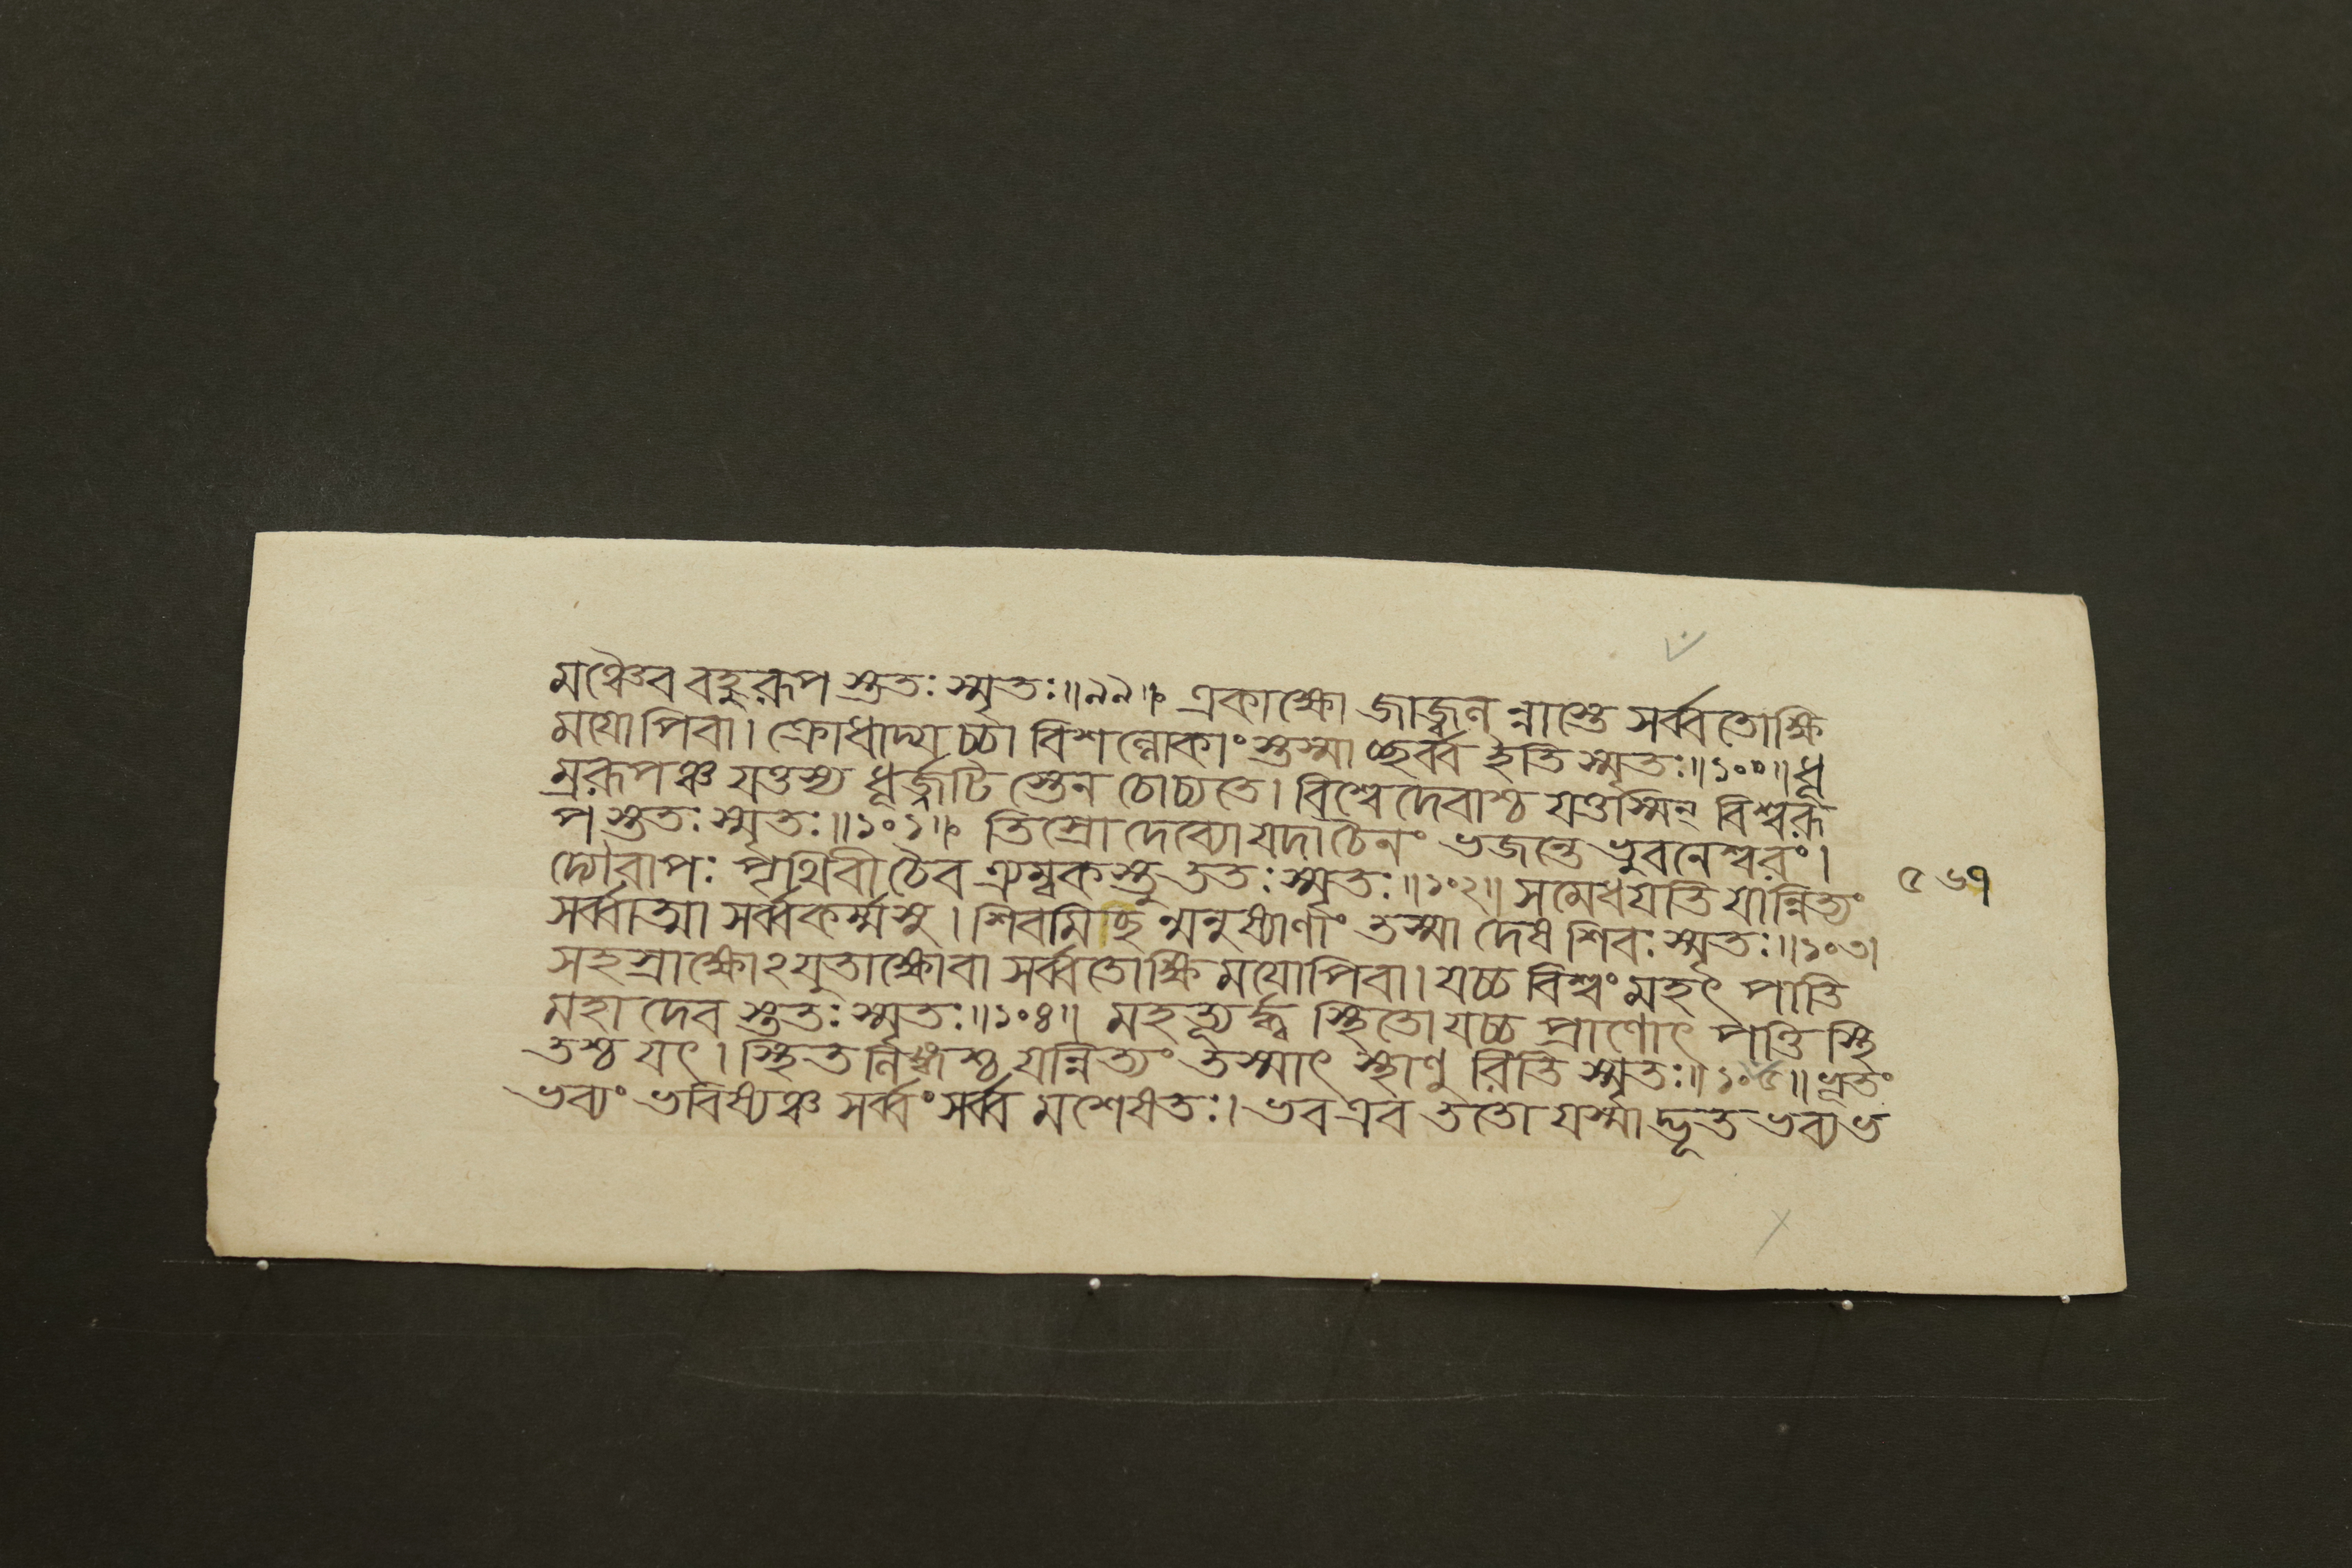 মঞ্চৈব বহুরূপ স্তুতঃ স্মৃতঃ॥৯৯॥ একাক্ষো জাজ্বল ন্নাস্তে সর্ব্বতোক্ষি
ময়োপিবা। ক্রোধাদ্য চ্চা বিশ ল্লোকাং স্তস্মা চ্ছর্ব্ব ইতি স্মৃতঃ॥১০০॥ধূ
ম্ররূপঞ্চ যত্তস্য ধূর্জ্জটি স্তেন চোচ্যতে। বিশ্বে দেবাশ্চ যত্তস্মিন্ বিশ্বরূ
প স্ততঃ স্মৃতঃ॥১০১॥ তিস্রো দেব্যো যদা চৈনং ভজন্তে ভুবনেশ্বরং।
দ্যৌরাপঃ পৃথিবী চৈব ত্র্যম্বক স্তু ততঃ স্মৃতঃ॥১০২॥ সমেধয়তি যান্নিত্যং
সর্ব্বাত্মা সর্ব্বকর্ম্মসু। শিবমিচ্ছ ন্মনুষ্যাণাং তস্মা দেষ শিবঃ স্মৃতঃ॥১০৩।
সহস্রাক্ষোঽযুতাক্ষোবা সর্ব্বতোক্ষি ময়োপিবা। যচ্চ বিশ্বং মহৎ পাতি
মহা দেব স্ততঃ স্মৃতঃ॥১০৪॥ মহত্যূর্দ্ধ্ব স্থিতো যচ্চ প্রাণোৎ পত্তি স্থি
তশ্চ যৎ। স্থিত র্লিঙ্গশ্চ যন্নিত্যং তস্মাৎ স্থাণু রিতি স্মৃতঃ॥১০৫॥ ভূতং
ভব্যং ভবিষ্যঞ্চ সর্ব্বং সর্ব্ব মশেষতঃ। ভব এব ততো যস্মা দ্ভূত ভব্য ভ
৫৬৭